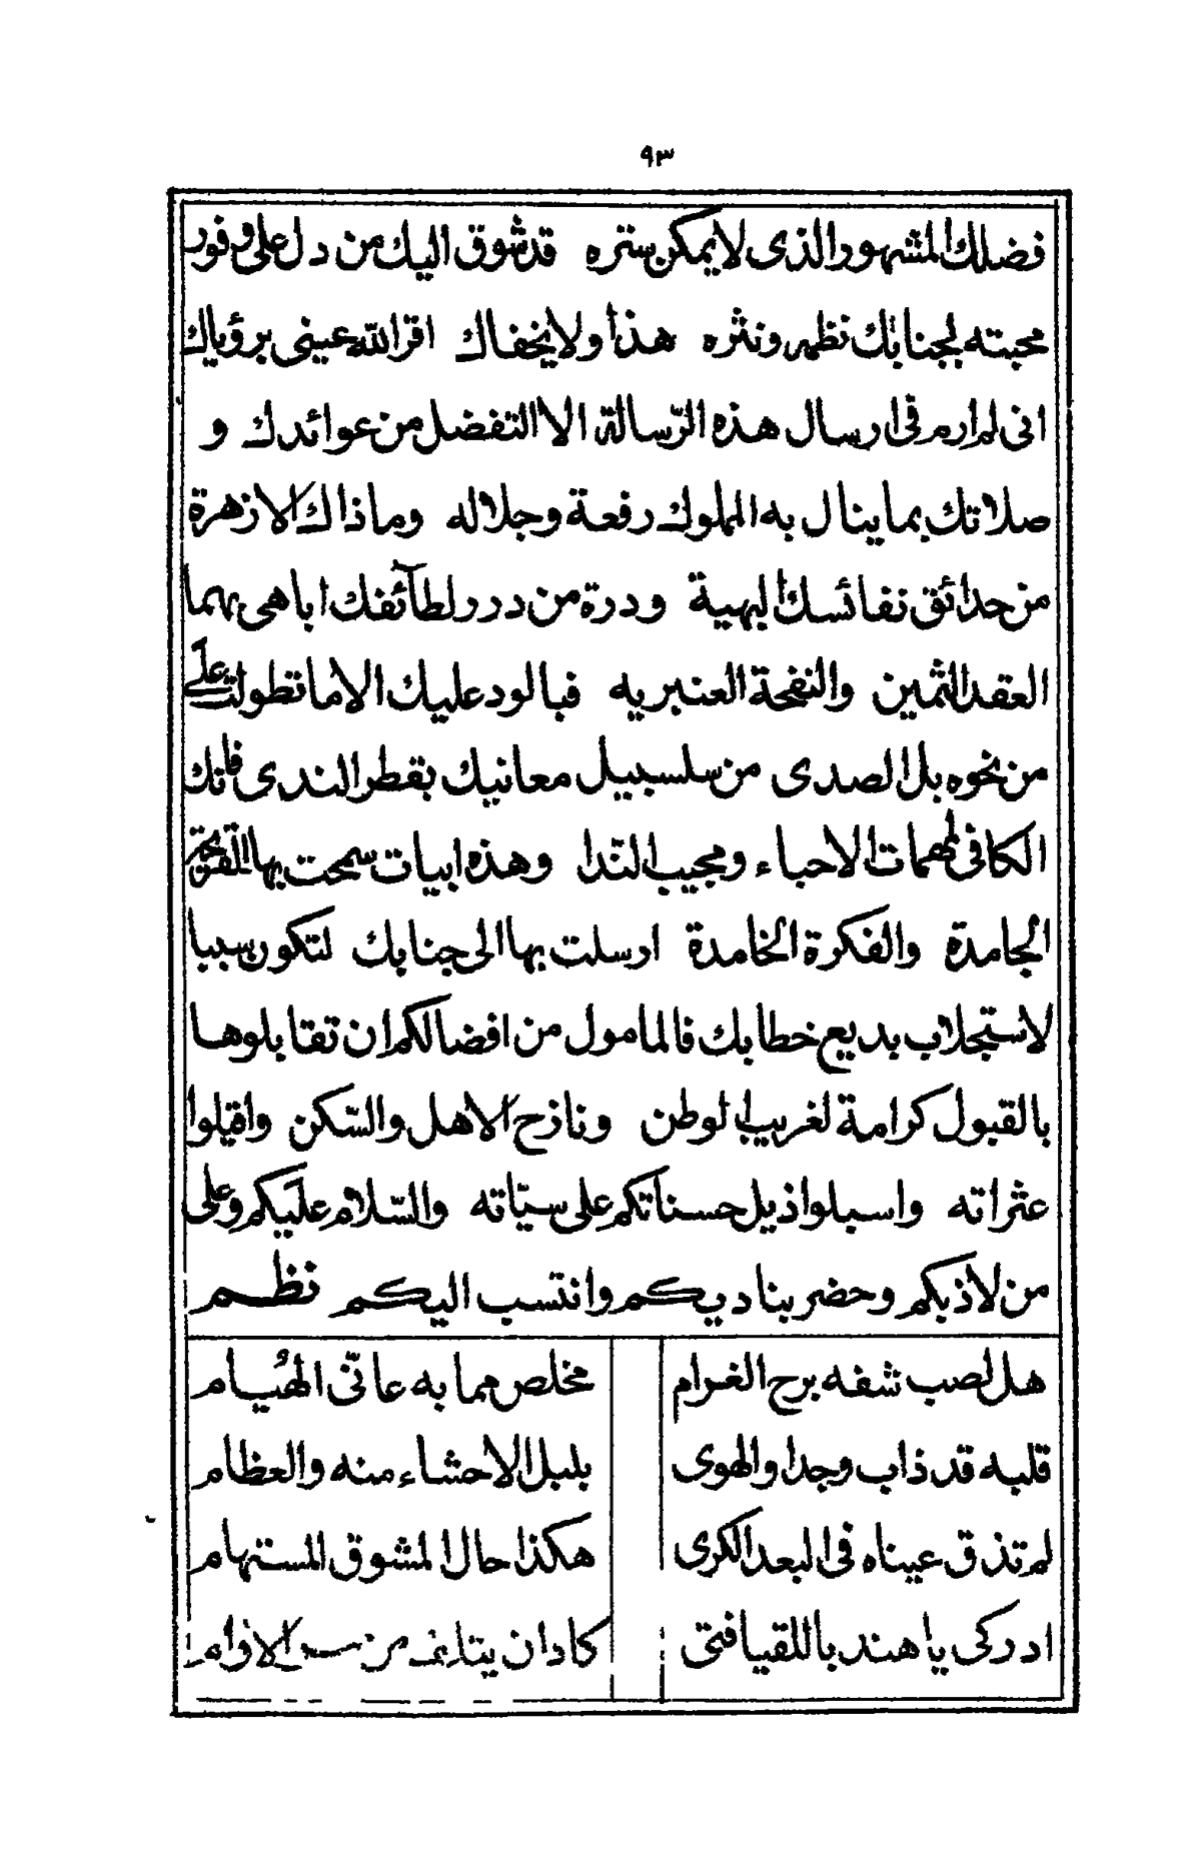 ٩٣
فضلك المشهور الذى لا يمكن ستره قد شوق اليك من دل على وفور
محبته لجنابك نظمه ونثره هذا ولا يخفاك اقر الله عينى برؤياك
انى لم ارم فى ارسال هذه الرّسالة الا التفضل من عوائدك و
صلاتك بما ينال به المملوك رفعة وجلاله وما ذاك الا زهرة
من حدائق نفائسك البهية ودرة من درر لطآئفك اباهى بهما
العقد الثمين والنفحة العنبريه فبالود عليك الا ما تطولت على
من نحوه بل الصدى من سلسبيل معانيك بقطر الندى فانك
الكافى لمهمات الاحباء ومجيب النّدا وهذه ابيات سمحت بها القريحة
الجامدة والفكرة الخامدة ارسلت بها الى جنابك لتكون سببا
لاستجلاب بديع خطابك فالمامول من افضالكم ان تقابلوها
بالقبول كرامة لغريب الوطن ونازح الاهل والسّكن واقيلوا
عثراته واسبلوا ذيل حسناتكم على سيّاته والسّلام عليكم وعلى
من لاذ بكم وحضر بناديكم وانتسب اليكم نظم
هل لصب شفه برح الغرام مخلص مما به عانّى الهُيام
قلبه قد ذاب وجدا والهوى بلبل الاحشاء منه والعظام
لم تذق عيناه فى البعد الكرى هكذا حال المشوق المستهام
ادركى يا هند باللقيا فتى كاد ان من الاوام